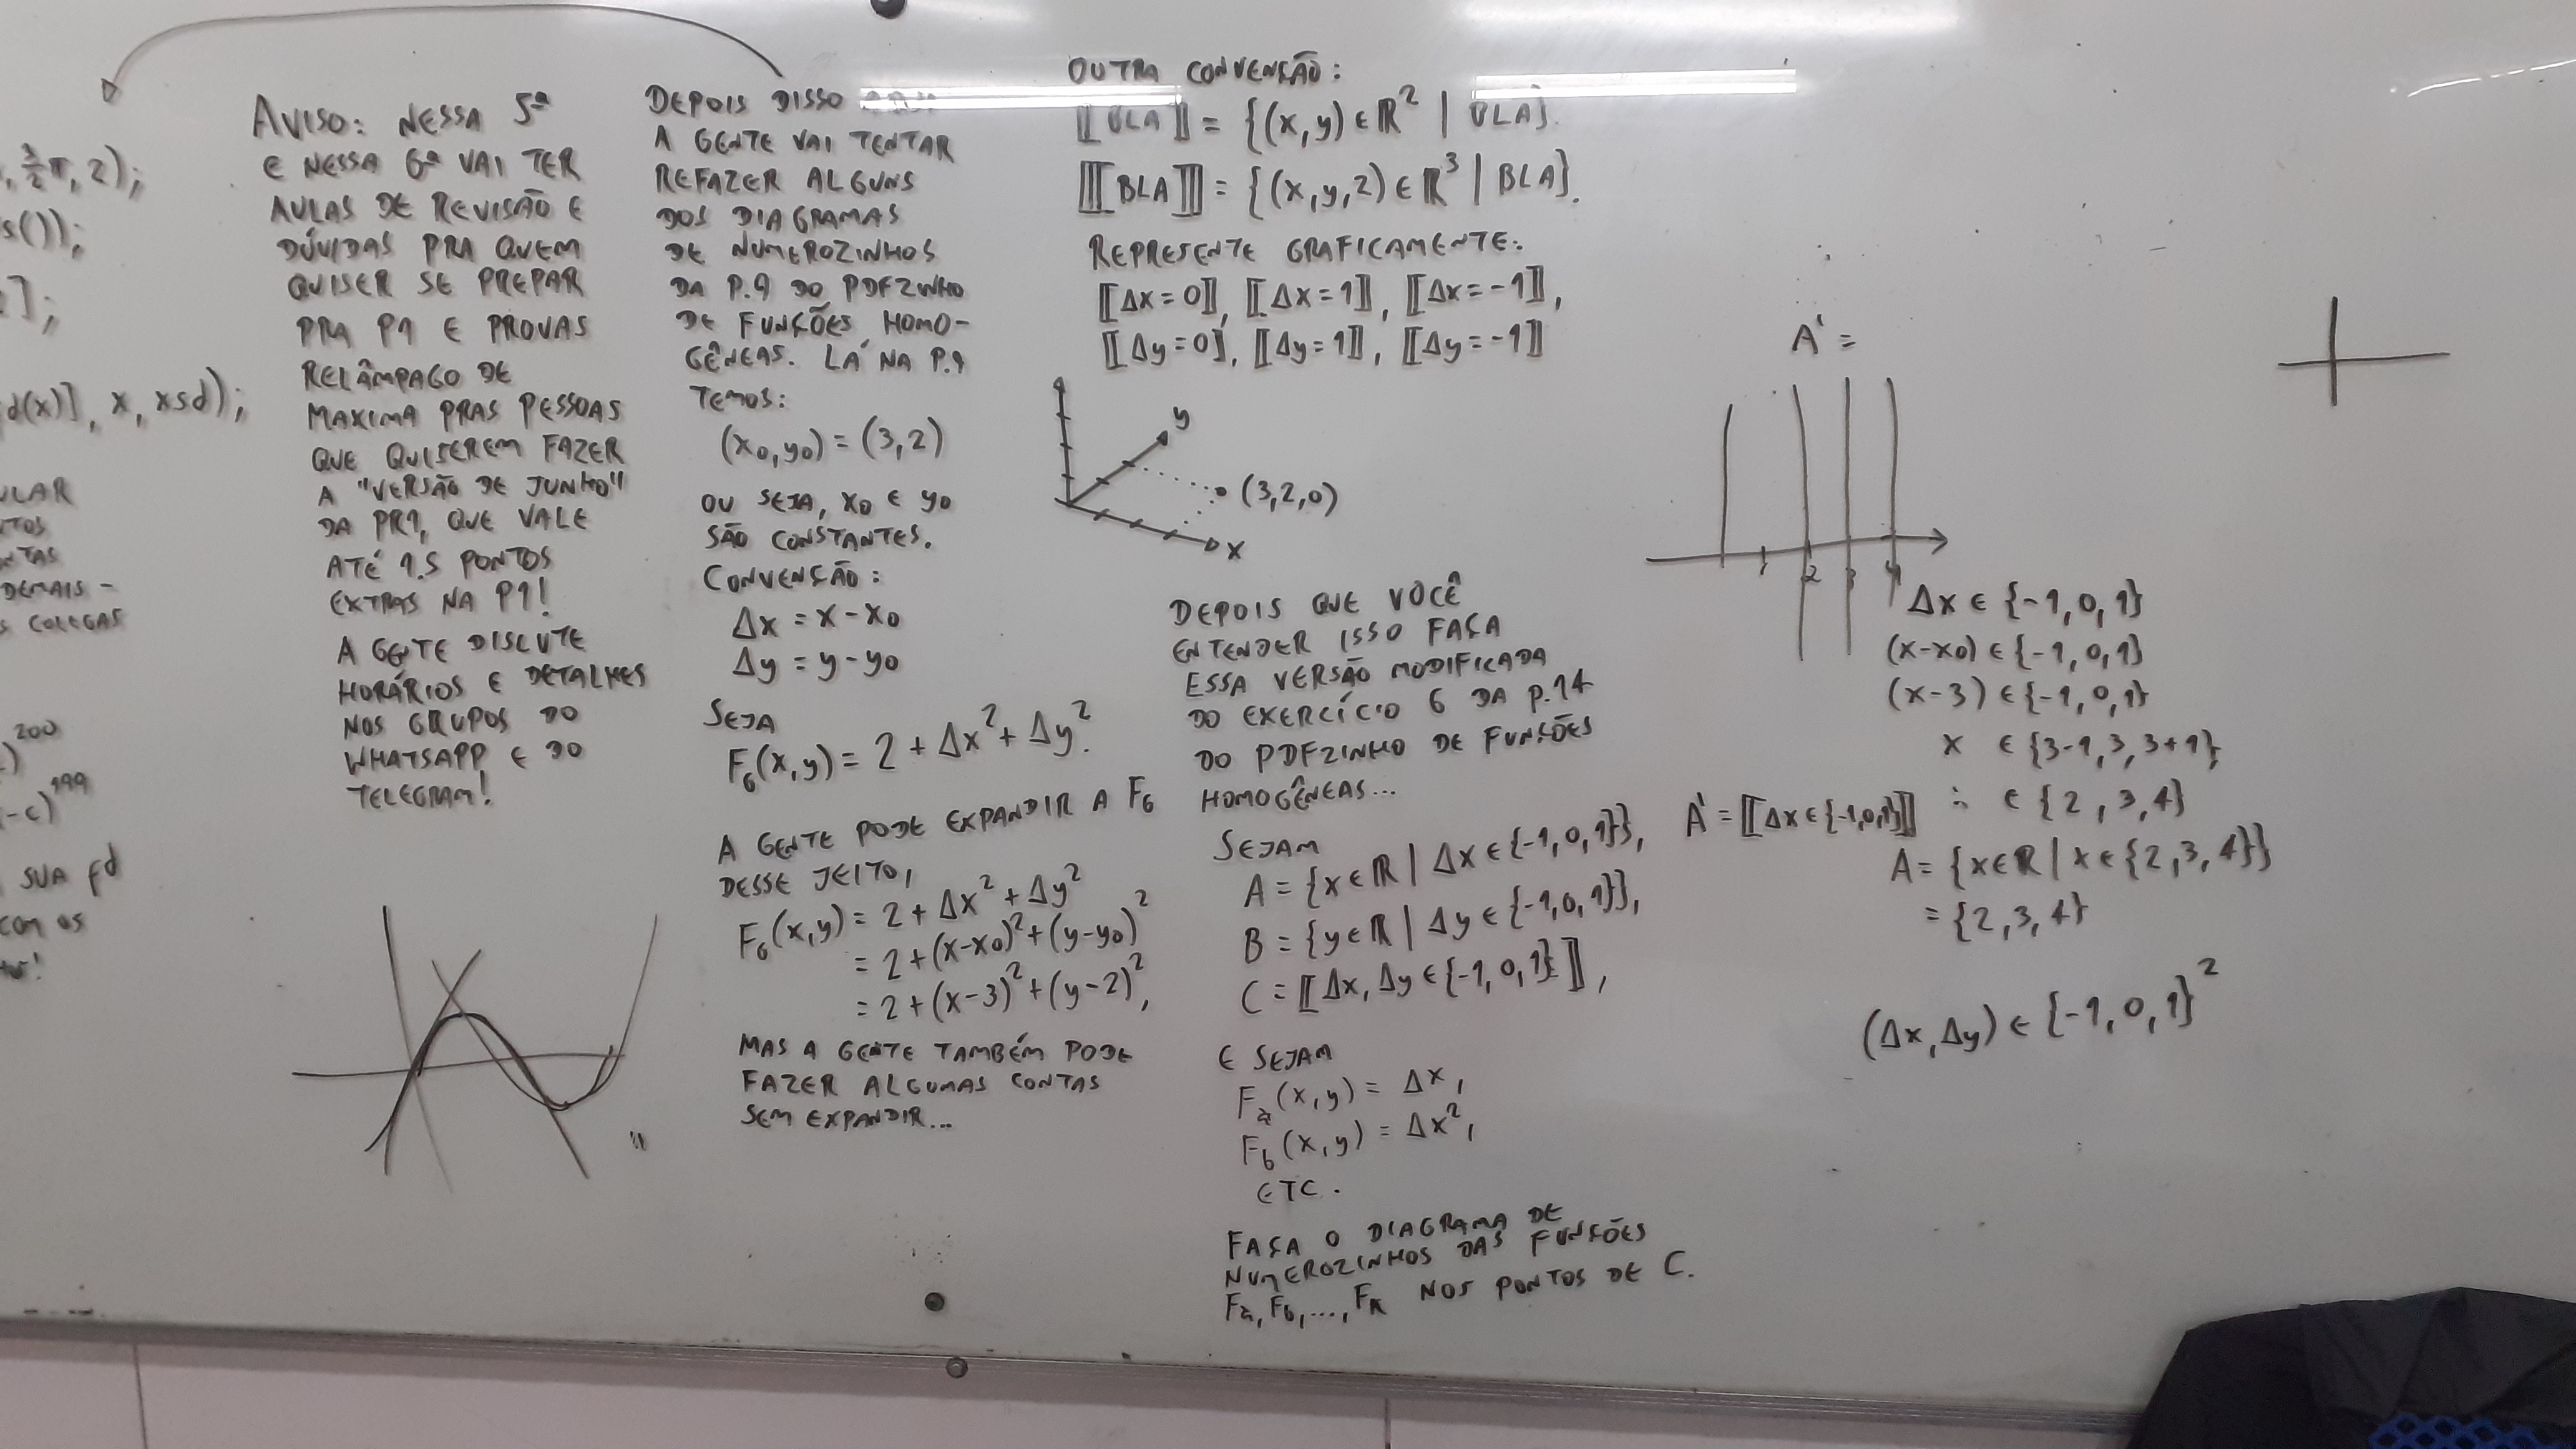 , 3/2 π, 2);
s());
];
d(x)], x, xsd);
ULAR
NTOS
NTAS
DEMAIS -
S COLEGAS
)^200
-c)^199
SUA fd
COM OS
AVISO: NESSA 5ª
E NESSA 6ª VAI TER
AULAS DE REVISÃO E
DÚVIDAS PRA QUEM
QUISER SE PREPAR
PRA P1 E PROVAS
RELÂMPAGO DE
MAXIMA PRAS PESSOAS
QUE QUISEREM FAZER
A "VERSÃO DE JUNHO"
DA PR1, QUE VALE
ATÉ 1.5 PONTOS
EXTRAS NA P1!
A GENTE DISCUTE
HORÁRIOS E DETALHES
NOS GRUPOS DO
WHATSAPP E DO
TELEGRAM!
DEPOIS DISSO
A GENTE VAI TENTAR
REFAZER ALGUNS
DOS DIAGRAMAS
DE NUMEROZINHOS
DA P.9 DO PDFZINHO
DE FUNÇÕES HOMO-
GÊNEAS. LÁ NA P.9
TEMOS:
(x0,y0) = (3,2)
OU SEJA, x0 E y0
SÃO CONSTANTES.
CONVENÇÃO:
Δx = x-x0
Δy = y-y0
SEJA
F6(x,y) = 2 + Δx² + Δy².
A GENTE PODE EXPANDIR A F6
DESSE JEITO,
F6(x,y) = 2 + Δx² + Δy²
= 2+(x-x0)²+(y-y0)²
= 2+(x-3)²+(y-2)²,
MAS A GENTE TAMBÉM PODE
FAZER ALGUMAS CONTAS
SEM EXPANDIR...
OUTRA CONVENÇÃO:
⟦BLA⟧ = {(x,y)∈ℝ² | BLA}.
⟦[BLA]⟧ = {(x,y,z)∈ℝ³ | BLA}.
REPRESENTE GRAFICAMENTE:
⟦Δx=0⟧, ⟦Δx=1⟧, ⟦Δx=-1⟧,
⟦Δy=0⟧, ⟦Δy=1⟧, ⟦Δy=-1⟧
y
(3,2,0)
x
DEPOIS QUE VOCÊ
ENTENDER ISSO FAÇA
ESSA VERSÃO MODIFICADA
DO EXERCÍCIO 6 DA P.14
DO PDFZINHO DE FUNÇÕES
HOMOGÊNEAS...
SEJAM
A = {x∈ℝ | Δx∈{-1,0,1}},
B = {y∈ℝ | Δy∈{-1,0,1}},
C = ⟦Δx,Δy∈{-1,0,1}⟧,
E SEJAM
Fa(x,y) = Δx,
Fb(x,y) = Δx²,
ETC.
FAÇA O DIAGRAMA DE
NUMEROZINHOS DAS FUNÇÕES
Fa, Fb, ..., Fk NOS PONTOS DE C.
A' =
1 2 3 4
Δx ∈ {-1,0,1}
(x-x0) ∈ {-1,0,1}
(x-3) ∈ {-1,0,1}
x ∈ {3-1,3,3+1}
A' = ⟦Δx∈{-1,0,1}⟧ ∴ ∈ {2,3,4}
A = {x∈ℝ | x∈{2,3,4}}
= {2,3,4}
(Δx,Δy) ∈ {-1,0,1}²